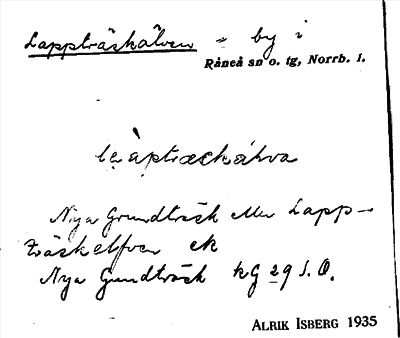 Lappträskälven - by i
Råneå sn o. tg, Norrb. l.
Nya Grundträsk eller Lapp-
träskelfven ek
Nya Grundträsk kg 29 S.O.
ALRIK ISBERG 1935